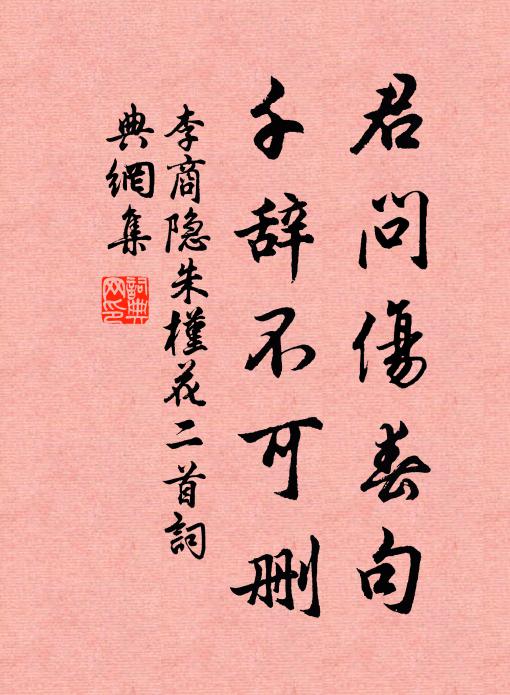 君问傷春句
千辞不可删
李商隐朱槿花二首詞
典網集
詞典
网印